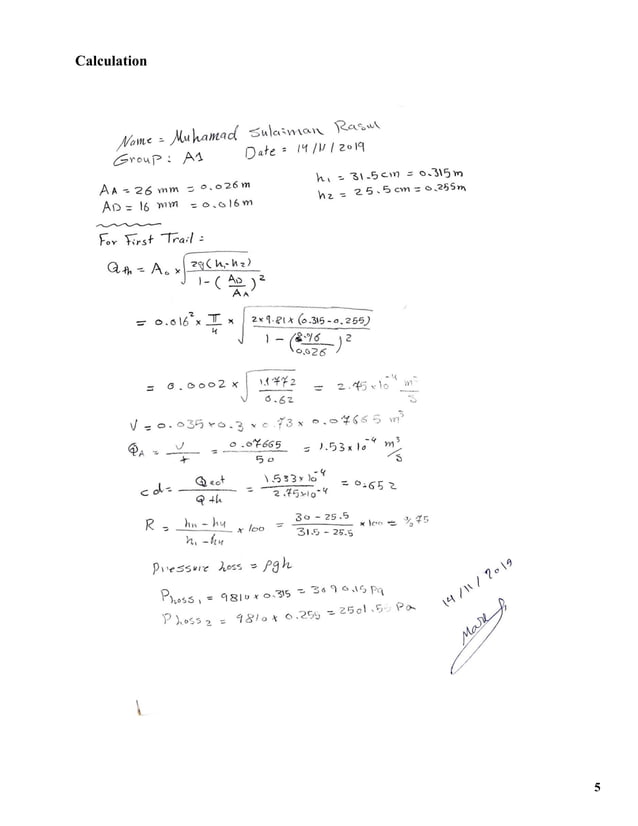 Calculation
Name = Muhamad Sulaiman Rasul
Group: A1 Date = 14/11/2019
A_A = 26 mm = 0.026m h₁ = 31.5cm = 0.315m
A_D = 16 mm = 0.016m h₂ = 25.5cm = 0.255m
For First Trail:
Qth = A₀ × √(2g(h₁-h₂) / 1-(A_D/A_A)²)
= 0.016² × π/4 × √(2×9.81×(0.315-0.255) / 1-(/0.026)²)
= 0.0002 × √(1.1772/0.62) = 2.75×10⁻⁴ m³/s
V = 0.035×0.3×0.73×0.07665 m³
Q_A = V/t = 0.07665/50 = 1.53×10⁻⁴ m³/s
cd = Qact/Qth = 1.533×10⁻⁴/2.75×10⁻⁴ = 0.652
R = h₁₁-h₄/h₁-h₄ ×100 = 30-25.5/31.5-25.5 ×100 = %75
Pressure hoss = ρgh
Phoss₁ = 9810×0.315 = 3090.15Pa
Phoss₂ = 9810×0.255 = 2501.55 Pa
14/11/2019
5